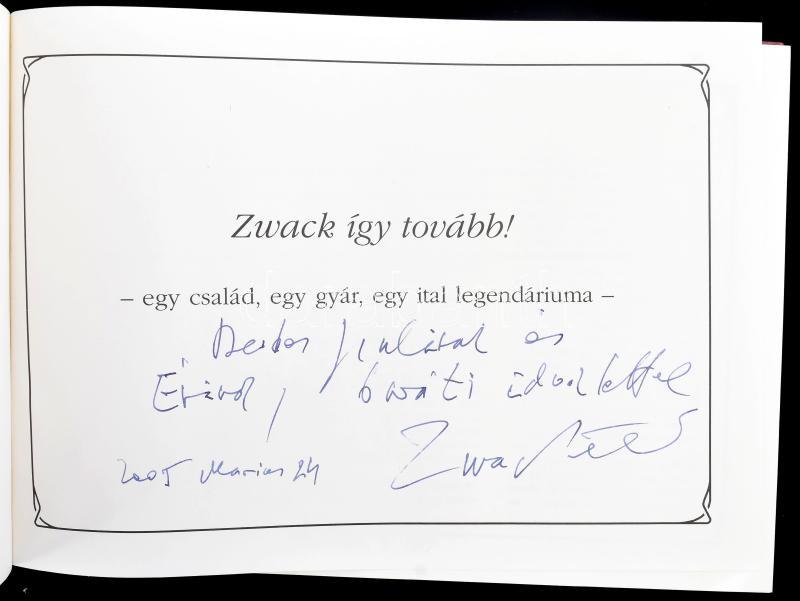 Zwack így tovább!
– egy család, egy gyár, egy ital legendáriuma –
Gyulának és
Évának, baráti üdvözlettel
2005 Március 24 Zwack Péter